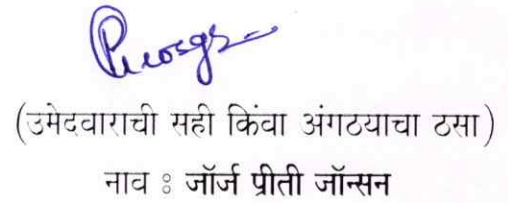 (उमेदवाराची सही किंवा अंगठयाचा ठसा)
नाव : जॉर्ज प्रीती जॉन्सन